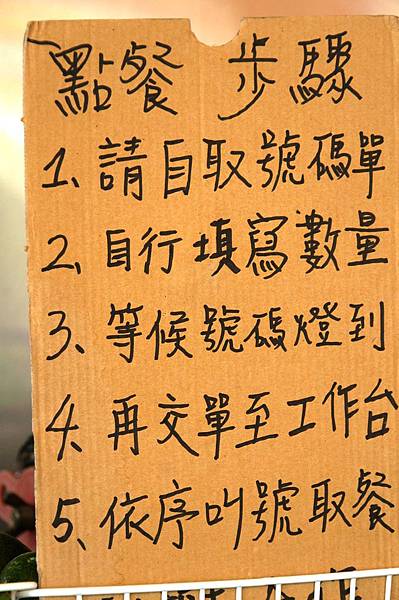 點餐 步驟
1、請自取號碼單
2、自行填寫數量
3、等候號碼燈到
4、再交單至工作台
5、依序叫號取餐